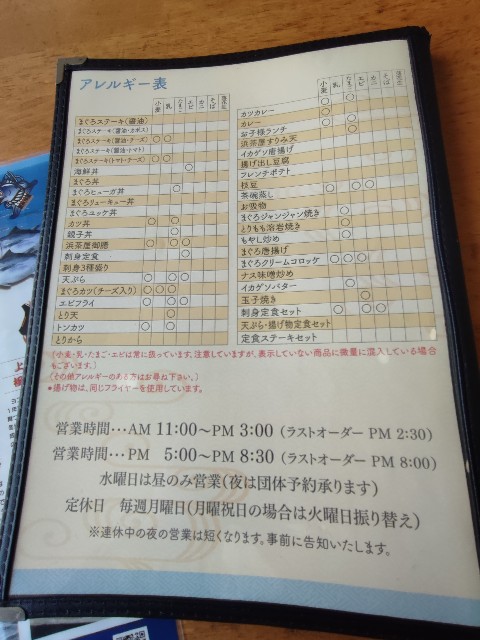 アレルギー表
小麦 乳 たまご エビ カニ そば 落花生
まぐろステーキ(醤油)
まぐろステーキ(醤油・カボス)
まぐろステーキ(醤油・チーズ) ○ ○
まぐろステーキ(醤油・トマト)
まぐろステーキ(トマト・チーズ) ○ ○
海鮮丼 ○
まぐろ丼
まぐろヒューガ丼 ○
まぐろリューキュー丼
まぐろユッケ丼
カツ丼 ○ ○
親子丼 ○
浜茶屋御膳 ○ ○ ○
刺身定食 ○
刺身3種盛り
天ぷら ○ ○ ○
まぐろカツ(チーズ入り) ○ ○ ○
エビフライ ○ ○ ○
とり天 ○
トンカツ ○ ○
とりから
小麦 乳 たまご エビ カニ そば 落花生
カツカレー ○ ○
カレー ○
お子様ランチ ○
浜茶屋すりみ天
イカゲソ唐揚げ
揚げ出し豆腐
フレンチポテト
枝豆
茶碗蒸し
お吸物
まぐろジャンジャン焼き
とりもも溶岩焼き
もやし炒め
まぐろ唐揚げ
まぐろクリームコロッケ
ナス味噌炒め
イカゲソバター
玉子焼き
刺身定食セット
天ぷら・揚げ物定食セット
定食ステーキセット
(小麦・乳・たまご・エビは常に扱っています。注意していますが、表示していない商品に微量に混入している場合
もございます。)
(その他アレルギーのある方はお尋ね下さい。)
●揚げ物は、同じフライヤーを使用しています。
営業時間…AM 11:00〜PM 3:00 (ラストオーダー PM 2:30)
営業時間…PM 5:00〜PM 8:30 (ラストオーダー PM 8:00)
水曜日は昼のみ営業(夜は団体予約承ります)
定休日 毎週月曜日(月曜祝日の場合は火曜日振り替え)
※連休中の夜の営業は短くなります。事前に告知いたします。